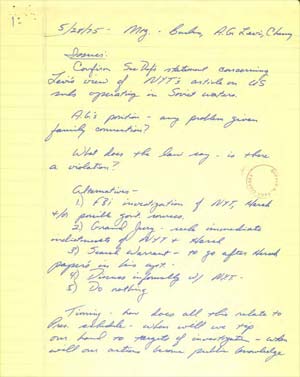 5/28/75 - Mtg - Buchen, A.G. Levi, Cheney
Issues:
Confirm Sec Def's statement concerning
Levi's view of NYT's article on US
subs operating in Soviet waters.
A.G.'s position - any problem given
family connection?
What does the law say - is there
a violation?
Alternatives -
1) FBI investigation of NYT, Hersh
&/or possible govt. sources.
2) Grand Jury - seek immediate
indictments of NYT & Hersh
3) Search Warrant - to go after Hersh
papers in his apt.
4) Discuss informally w/ NYT -
5) Do nothing
Timing - how does all this relate to
Pres. schedule - when will we tip
our hand to targets of investigation - when
will our actions become public knowledge